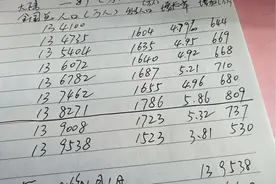 大陆
全国总人口(万人) 出生人口
134100 1604 4.79‰ 644
134735 1635 4.95 669
135404 1640 4.92 668
136072 1687 5.21 710
136782 1655 4.96 680
137462 1786 5.86 809
138271 1723 5.32 737
139008 1523 3.81 530
139538
139538